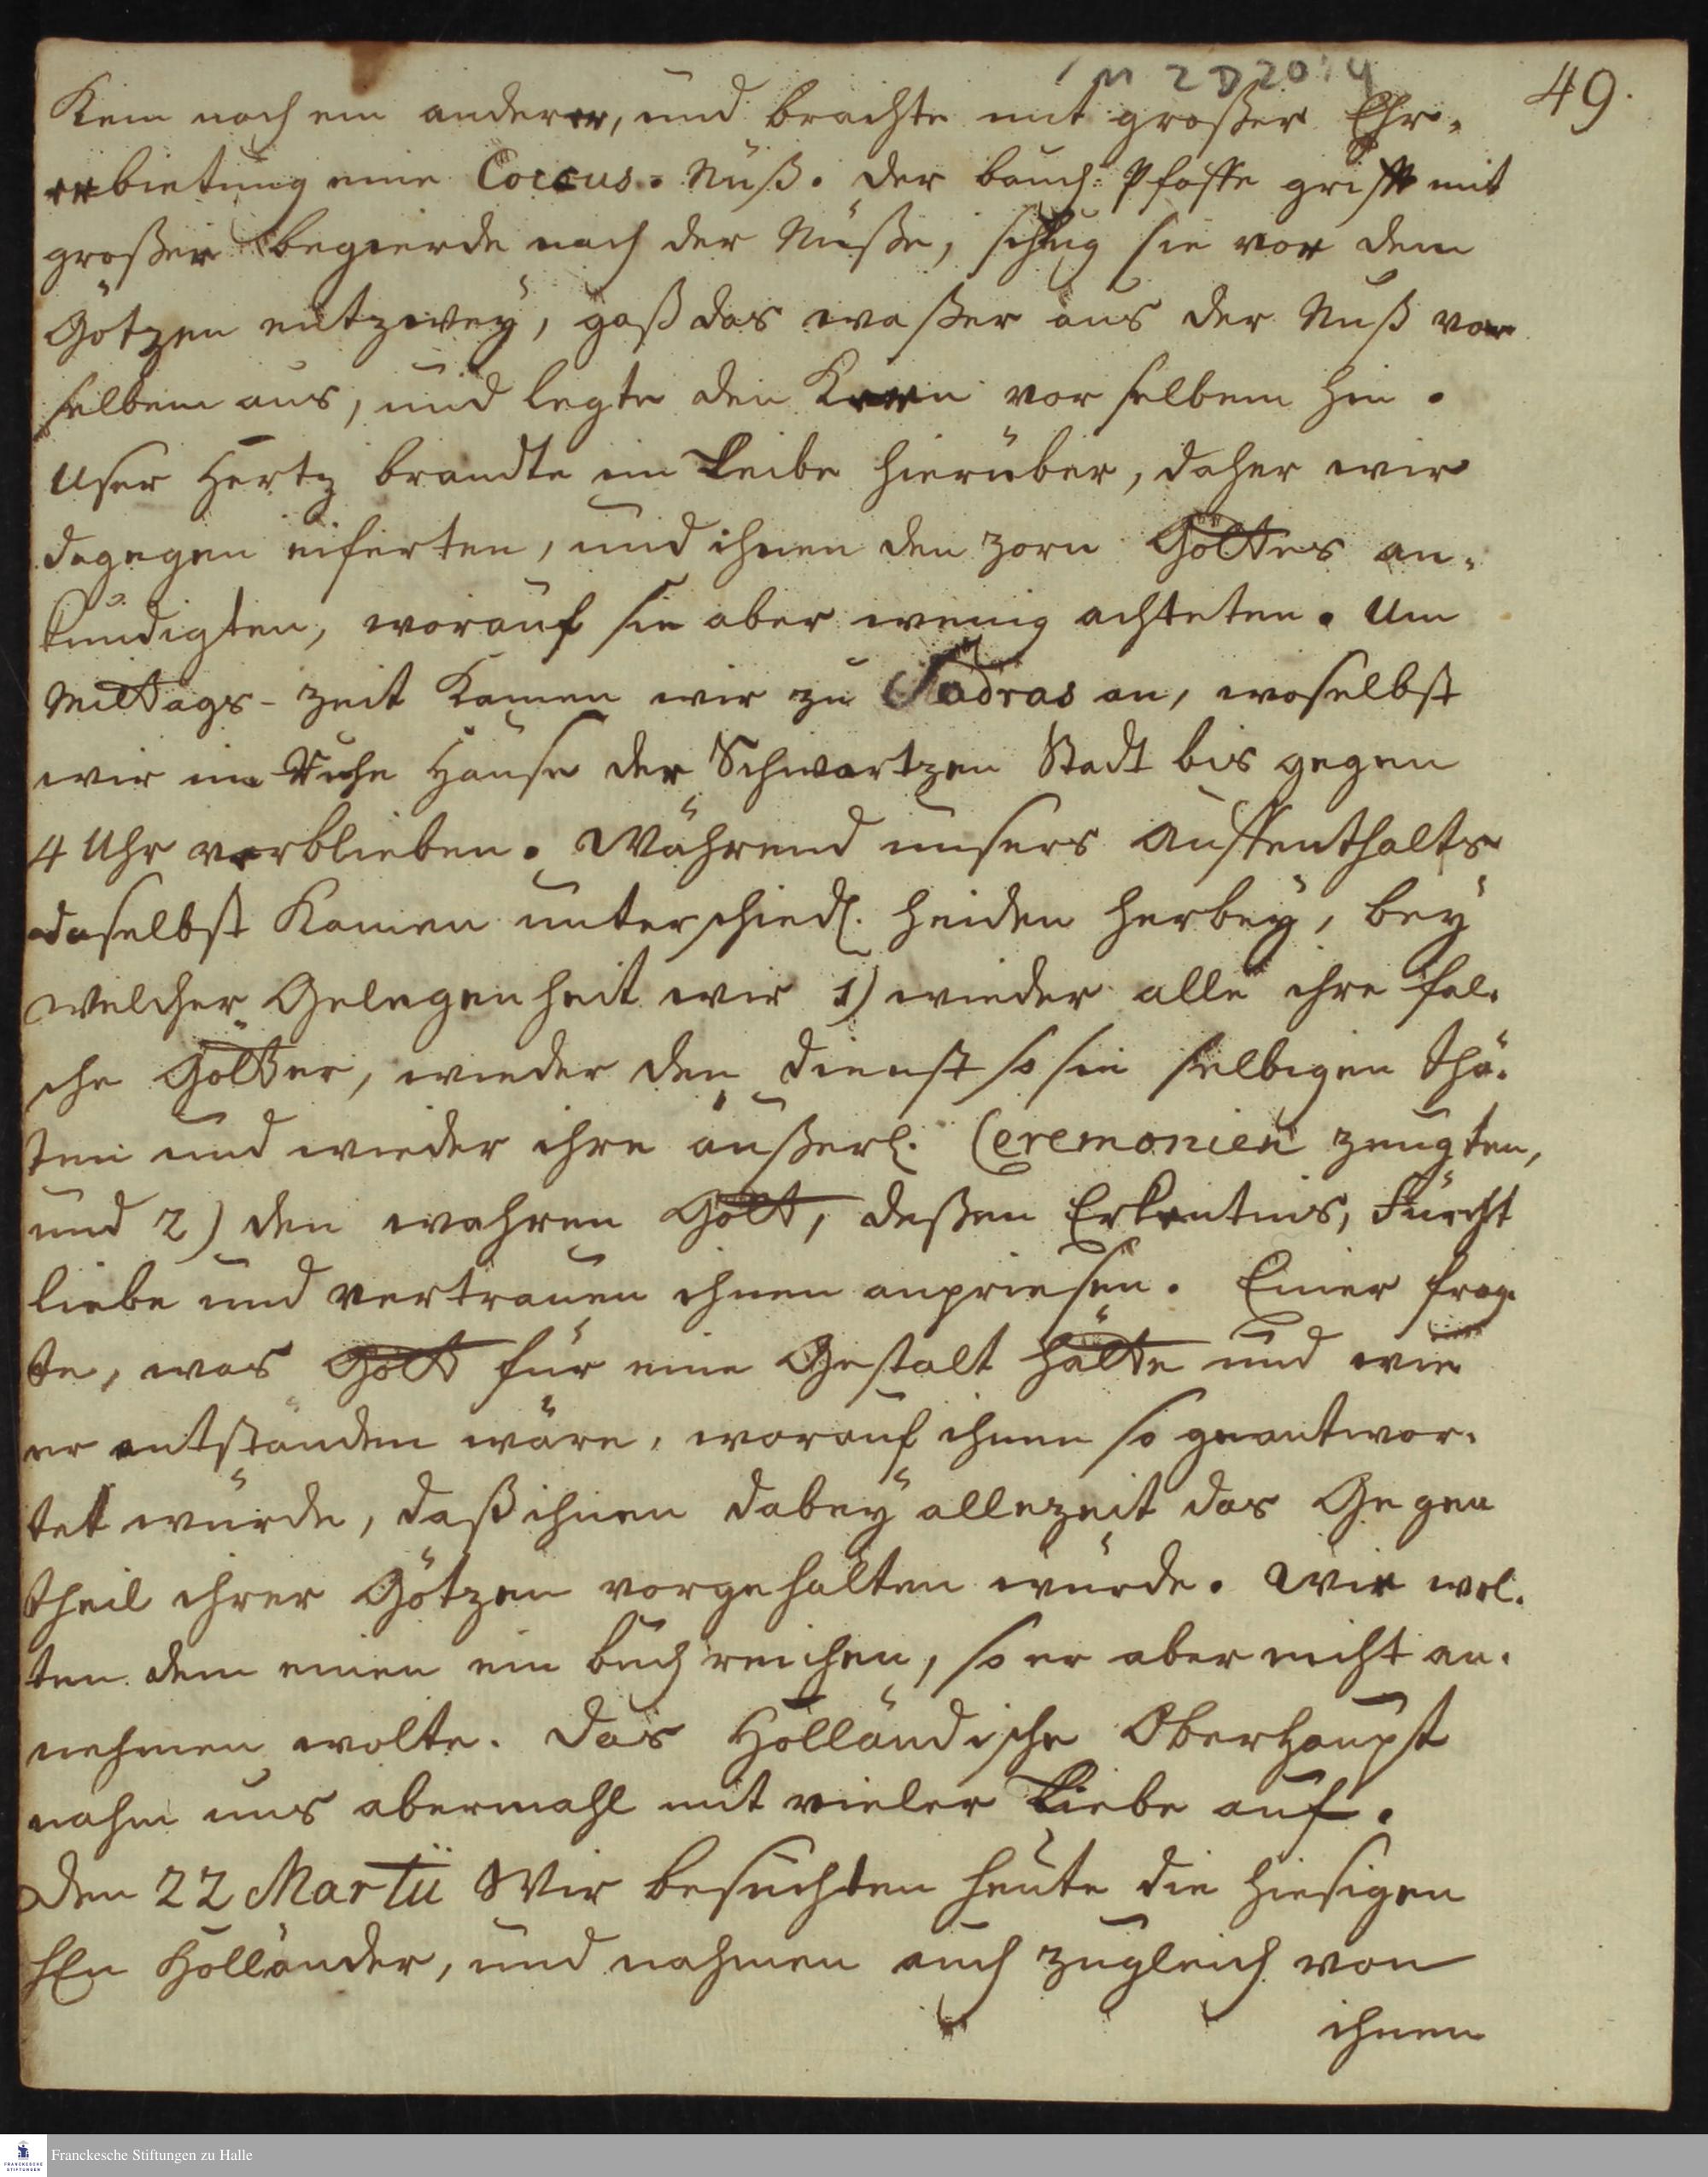 1 M 2 D 20:4
49.
Kam noch ein anderer, und brachte mit großer Ehr-
erbietung eine Coccus-Nuß. Der bauch-Pfaffe griff mit
großer begierde nach der Nuße, schlug sie vor dem
Götzen entzwey, goß das waßer aus der Nuß vor
selbem aus, und legte den Kern vor selbem hin.
Unser Hertz brandte im Leibe hierüber, daher wir
dagegen eiferten, und ihnen den zorn Gottes an-
kündigten, worauf sie aber wenig achteten. Um
Mittags-zeit kamen wir zu Sadras an, woselbst
wir im Ruhe Hause der Schwartzen Stadt bis gegen
4 Uhr verblieben. Während unsers auffenthalts
daselbst kamen unterschiedl. Heiden herbey, bey
welcher Gelegenheit wir 1) wieder alle ihre fal-
sche Götter, wieder den dienst so sie selbigen thä-
ten und wieder ihre äußerl. Ceremonien zeugten,
und 2) den wahren Gott, deßen Erkentnis, Furcht
liebe und vertrauen ihnen anpriesen. Einer frag-
te, was Gott für eine Gestalt hätte und wie
er entstanden wäre, worauf ihnen so geantwor-
tet wurde, daß ihnen dabey allezeit das Gegen
theil ihrer Götzen vorgehalten wurde. Wir wol-
ten dem einen ein buch reichen, so er aber nicht an-
nehmen wolte. Das Holländische Oberhaupt
nahm uns abermahl mit vieler Liebe auf.
Den 22 Martii Wir besuchten heute die hiesigen
HEn Holländer, und nahmen auch zugleich von
ihnen
Franckesche Stiftungen zu Halle